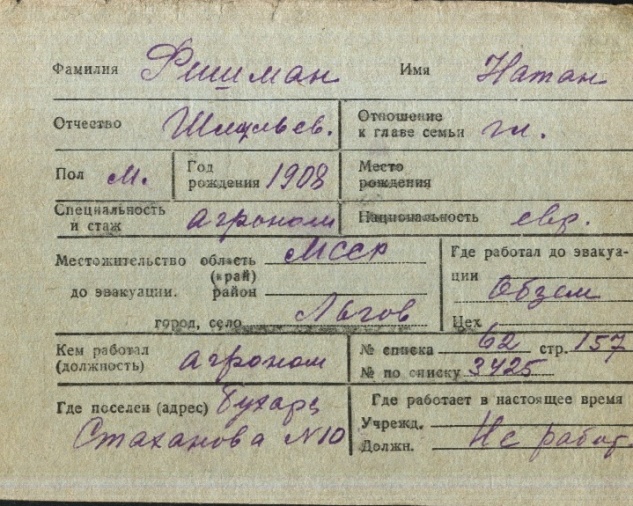 Фамилия Фишман Имя Натан
Отчество Шмульев. Отношение к главе семьи гл.
Пол м. Год рождения 1908 Место рождения
Специальность и стаж агроном Национальность евр.
Местожительство область МССР Где работал до эвакуа-
(край)
до эвакуации. район ции Обзем
город, село Льгов Цех
Кем работал (должность) агроном № списка 62 стр. 157
№ по списку 3425
Где поселен (адрес) Бухара Где работает в настоящее время
Стаханова N10 Учрежд.
Должн. Не работ.